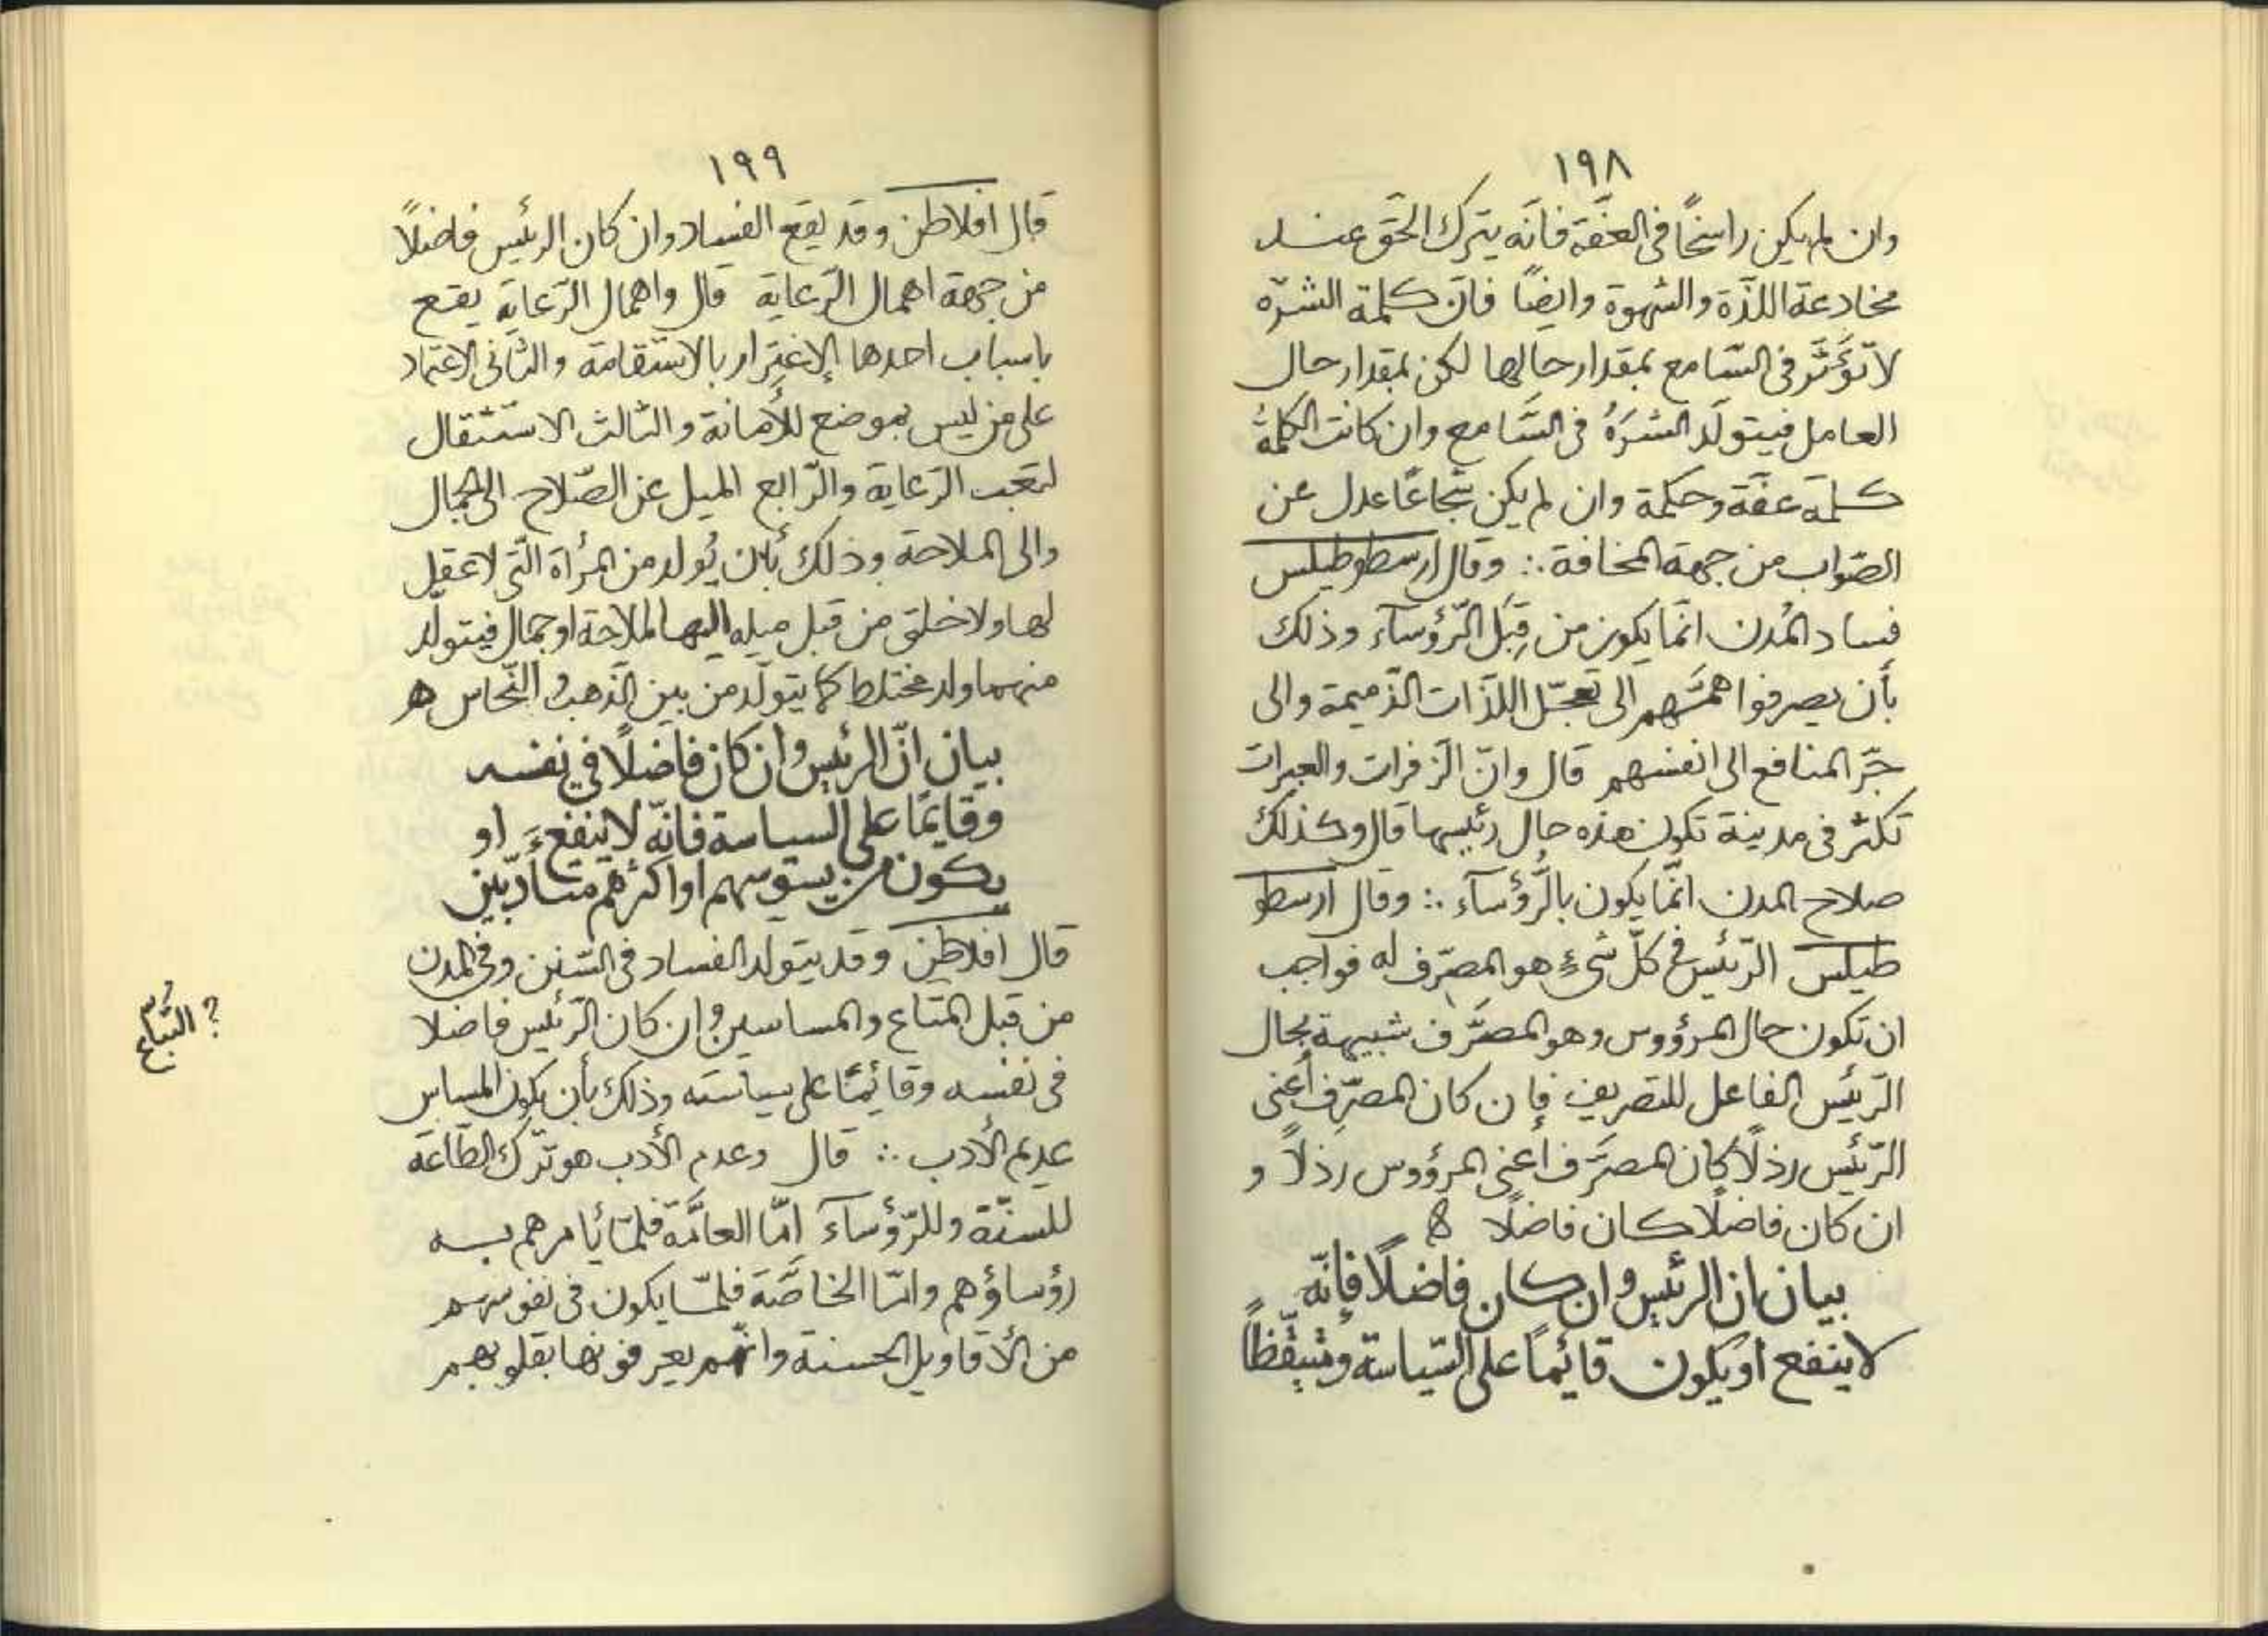 ١٩٨
وان لم يكن راسخًا فى العفّة فانّه يترك الحّق عند
مخادعة اللذّة والشهوة وايضًا فانّ كلمة الشرّه
لا تؤثّر فى السّامع بمقدار حالها لكن بمقدار حال
العامل فيتولّد الشرَهُ فى السَّامع وان كانت الكلمةُ
كلمة عفّة وحكمة وان لم يكن شجاعًا عدل عن
الصّواب من جهة المخافة ∴ وقال ارسطوطيلس
فساد المُدن انّما يكون من قِبَل الرّؤسآء وذلك
بأن يصرفوا همّتهم الى تعجّل اللذّات الذّميمة والى
جّر المنافع الى انفسهم قال وانّ الزفرات والعبرات
تكثر فى مدينة تكون هذه حال رئيسها قال وكذلك
صلاح المدن انّما يكون بالرُّؤسآء ∴ وقال ارسطو
طيلس الرّئيس فى كلّ شىءٍ هو المصرّف له فواجب
ان تكون حال المرؤوس وهو المصرَّف شبيهة بحال
الرّئيس الفاعل للتصريف فإن كان المصرِّف أعنى
الرّئيس رذلًا كان المصرَّف اعنى المرؤوس رذلاً و
ان كان فاضلًا كان فاضلًا ه
بيان ان الرئيس وان كان فاضلًا فإنّه
لا ينفع او يكون قائيماً على السّياسة ومتيقّظاً
١٩٩
قال افلاطن وقد يقع الفساد وان كان الرئيس فاضلًا
من جهة اهمال الرّعاية قال واهمال الرّعاية يقع
باسباب احدها الإغترار بالاستقامة والثانى الاعتماد
على من ليس بموضع للأمانة والثالث الاستثقال
لتعب الرّعاية والرّابع الميل عن الصّلاح الى الجمال
والى الملاحة وذلك بأن يُولد من المرأة الّتى لا عقل
لها ولا خلق من قبل ميله اليها لملاحة او جمال فيتولّد
منهما ولد مختلط كما يتولّد من بين الذّهب والنّحاس ه
بيان انّ الرئيس وان كان فاضلًا فى نفسه
وقايمًا على السياسة فانّه لا ينفع او
يكون من يسوسهم او اكثرهم متأدّبين
قال افلاطن وقد يتولد الفساد فى السنن وفى المدن
من قبل المتاع والمساسين وان كان الرّئيس فاضلا
فى نفسه وقائيمًا على سياسته وذلك بأن يكون المساس
عديم الأدب ∴ قال وعدم الأدب هو ترك الطّاعة
للسنّة وللرّؤسآء امّا العامّة فلمّا يأمرهم به
رؤساؤهم وامّا الخاصَّة فلمّا يكون فى نفوسهم
من الأقاويل الحسنة وانّهم يعرفونها بقلوبهم
؟ التُبّاع